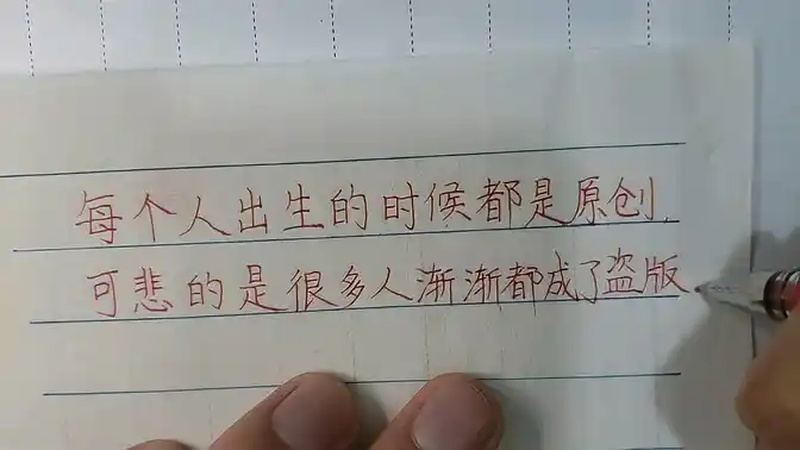 每个人出生的时候都是原创,
可悲的是很多人渐渐都成了盗版